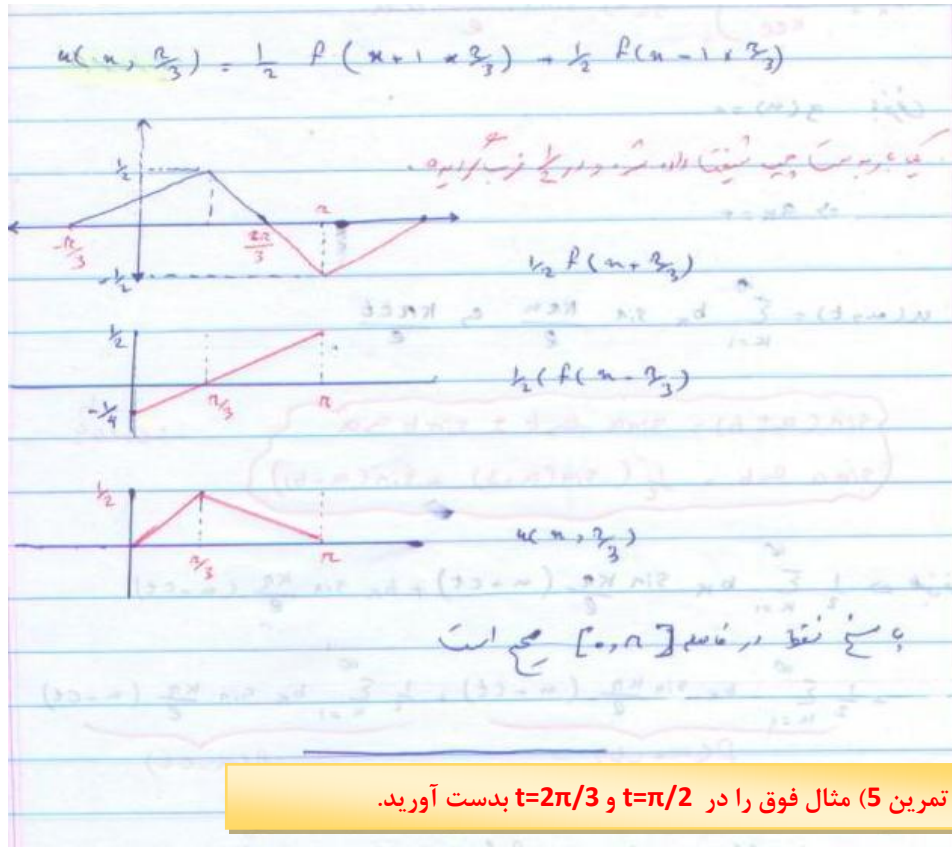 u(x, π/3) = 1/2 f(x + 1 × π/3) + 1/2 f(x - 1 × π/3)
یک بار به سمت چپ شیفت داده شده و در 1/2 ضرب گردیده.
1/2
-π/3
2π/3
π
-1/2
1/2 f(x + π/3)
1/2
-1/4
π/3
π
1/2 (f(x - π/3)
1/2
π/3
π
u(x, π/3)
پاسخ فقط در فاصله [0, π] صحیح است
تمرین 5) مثال فوق را در t=π/2 و t=2π/3 بدست آورید.